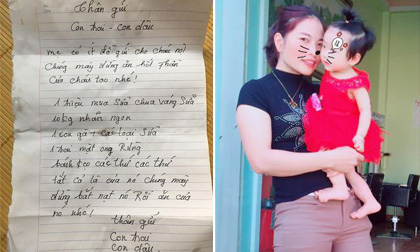 thân gửi
Con trai - Con dâu
mẹ có ít đồ gửi cho cháu nội
Chúng mày đừng ăn hết Phần
Của cháu tao nhé!
1 triệu mua Sữa chua váng Sữa
10 kg nhãn ngon
1 con gà + các loại Sữa
1 chai mật ong Rừng
bánh kẹo các thứ các thứ
tất cả là của nó chúng mày
đừng bắt nạt nó Rồi ăn của
nó nhé!
thân gửi
Con trai
Con dâu